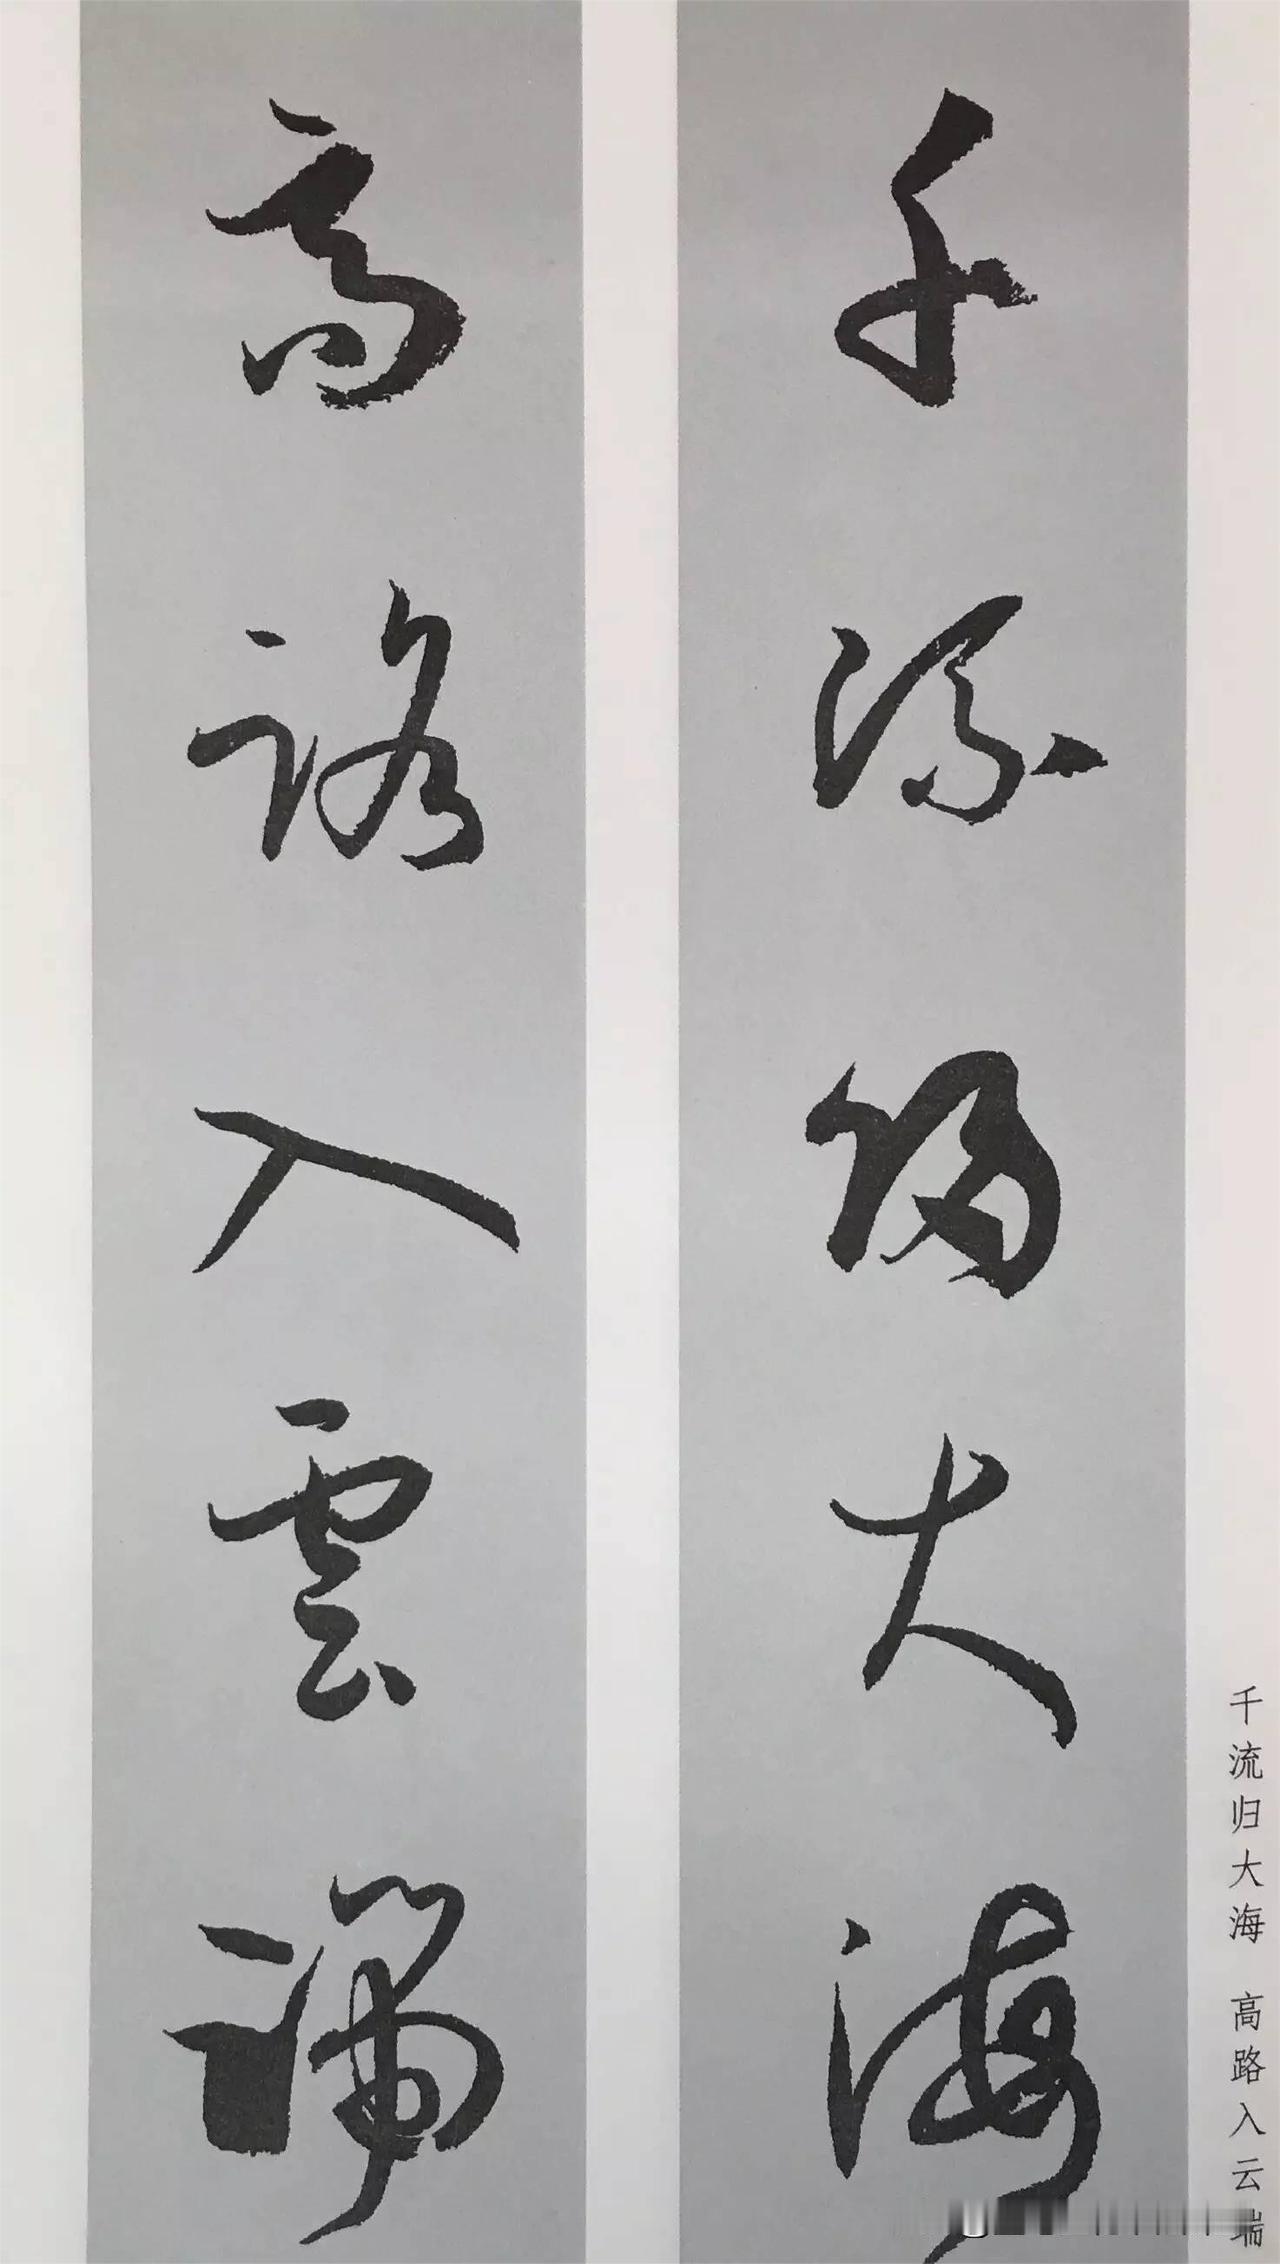 千流歸大海
高路入雲端
千流归大海 高路入云端